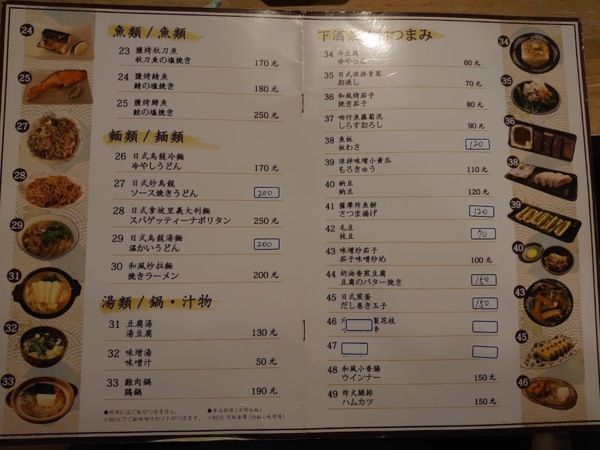 魚類/魚類
23 鹽烤秋刀魚
秋刀魚の塩焼き 170元
24 鹽烤鯖魚
鯖の塩焼き 180元
25 鹽烤鮭魚
鮭の塩焼き 250元
麵類/麺類
26 日式烏龍冷麵
冷やしうどん 170元
27 日式炒烏龍
ソース焼きうどん 200
28 日式拿坡里義大利麵
スパゲッティーナポリタン 250元
29 日式烏龍湯麵
温かいうどん 200
30 和風炒拉麵
焼きラーメン 200元
湯類/鍋・汁物
31 豆腐湯
湯豆腐 130元
32 味增湯
味噌汁 50元
33 雞肉鍋
鶏鍋 190元
●料理にはご飯がつきません。
+80元でご飯味噌汁セットがつきます。
下酒菜/おつまみ
34 冷豆腐
冷やっこ 60元
35 日式涼拌青菜
お浸し 70元
36 和風烤茄子
焼き茄子 80元
37 吻仔魚蘿蔔泥
しらすおろし 90元
38 魚板
板わさ 120
39 涼拌味增小黃瓜
もろきゅう 110元
40 納豆
納豆 120元
41 薩摩炸魚餅
さつま揚げ 120
42 毛豆
枝豆 70
43 味增炒茄子
茄子味噌炒め 100元
44 奶油香煎豆腐
豆腐のバター焼き 150
45 日式煎蛋
だし巻き玉子 150
46 製花枝
47
48 和風小香腸
ウインナー 150元
49 炸火腿排
ハムカツ 150元
24
25
27
28
29
31
32
33
34
35
36
38
39
40
43
45
46